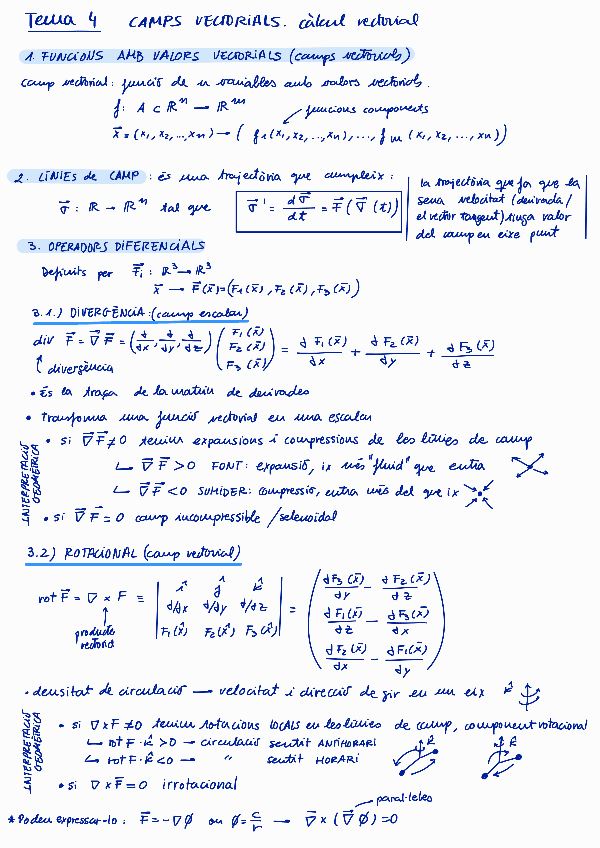 Tema 4 CAMPS VECTORIALS. càlcul vectorial
1. FUNCIONS AMB VALORS VECTORIALS (camps vectorials)
camp vectorial: funció de n variables amb valors vectorials.
f: A ⊂ ℝⁿ → ℝᵐ
funcions components
x⃗ = (x₁, x₂, ..., xₙ) → (f₁(x₁, x₂, ..., xₙ), ..., fₘ(x₁, x₂, ..., xₙ))
2. LÍNIES de CAMP: és una trajectòria que compleix:
σ⃗: ℝ → ℝⁿ tal que
σ⃗' = dσ⃗/dt = F⃗(σ⃗(t))
la trajectòria que fa que la
seua velocitat (derivada/
el vector tangent) tinga valor
del camp en eixe punt
3. OPERADORS DIFERENCIALS
Definits per F⃗: ℝ³ → ℝ³
x⃗ → F⃗(x̄) = (F₁(x̄), F₂(x̄), F₃(x̄))
3.1.) DIVERGÈNCIA: (camp escalar)
div F⃗ = ∇⃗ F⃗ = (d/dx, d/dy, d/dz) (F₁(x̄) F₂(x̄) F₃(x̄)) = d F₁(x̄)/dx + d F₂(x̄)/dy + d F₃(x̄)/dz
divergència
• És la traça de la matriu de derivades
• Transforma una funció vectorial en una escalar
INTERPRETACIÓ GEOMÈTRICA
• si ∇⃗ F⃗ ≠ 0 tenim expansions i compressions de les línies de camp
↳ ∇⃗ F⃗ > 0 FONT: expansió, ix més "fluid" que entra
↳ ∇⃗ F⃗ < 0 SUMIDER: compressió, entra més del que ix
• si ∇⃗ F⃗ = 0 camp incompressible / selenoidal
3.2) ROTACIONAL (camp vectorial)
rot F⃗ = ∇ × F ≡ | î ĵ k̂ d/dx d/dy d/dz F₁(x̂) F₂(x̂) F₃(x̂) | = (dF₃(x̄)/dy − dF₂(x̄)/dz dF₁(x̄)/dz − dF₃(x̄)/dx dF₂(x̄)/dx − dF₁(x̄)/dy)
producte
vectorial
• densitat de circulació → velocitat i direcció de gir en un eix k̂
INTERPRETACIÓ GEOMÈTRICA
• si ∇×F ≠ 0 tenim rotacions LOCALS en les línies de camp, component rotacional
↳ rot F · k̂ > 0 → circulació sentit ANTIHORARI
↳ rot F · k̂ < 0 → " sentit HORARI
k̂ k̂
• si ∇×F̄ = 0 irrotacional
paral·leles
* Podem expressar-lo: F⃗ = −∇⃗∅ on ∅ = c/r → ∇⃗ × (∇⃗ ∅) = 0